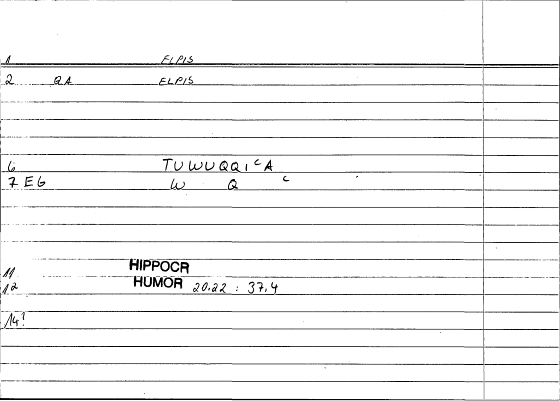 1 ELPIS
2 QA ELPIS
6 TUWUQQIcA
7 EG W Q c
11 HIPPOCR
12 HUMOR 20.22 : 37.4
14!